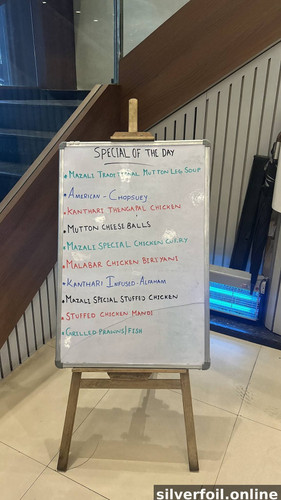 SPECIAL OF THE DAY
• MAZALI TRADITIONAL MUTTON LEG SOUP
• AMERICAN - CHOPSUEY
• KANTHARI THENGAPAL CHICKEN
• MUTTON CHEESE BALLS
• MAZALI SPECIAL CHICKEN CURRY
• MALABAR CHICKEN BIRIYANI
• KANTHARI INFUSED - ALFAHAM
• MAZALI SPECIAL STUFFED CHICKEN
• STUFFED CHICKEN MANDI
• GRILLED PRAWNS/FISH
silverfoil.online